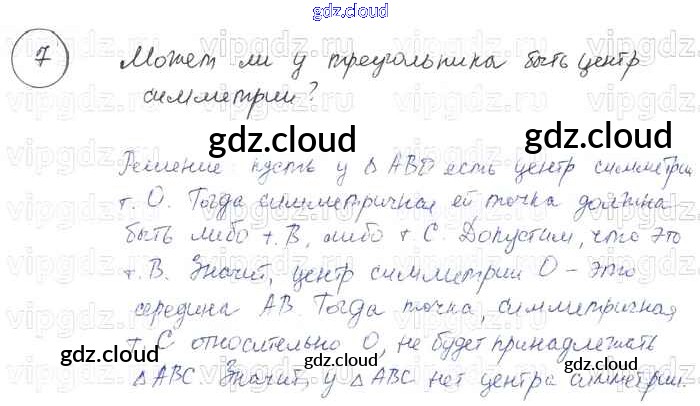 gdz.cloud
7 Может ли у треугольника быть центр
симметрии?
gdz.cloud gdz.cloud
Решение: пусть у △ABD есть центр симметрии
т. O. Тогда симметричная ей точка должна
быть либо т. B, либо т C. Допустим, что это
т. B. Значит, центр симметрии O – это
середина AB. Тогда точка, симметричная
т. C относительно O, не будет принадлежать
△ABC. Значит, у △ABC нет центра симметрии.
gdz.cloud gdz.cloud